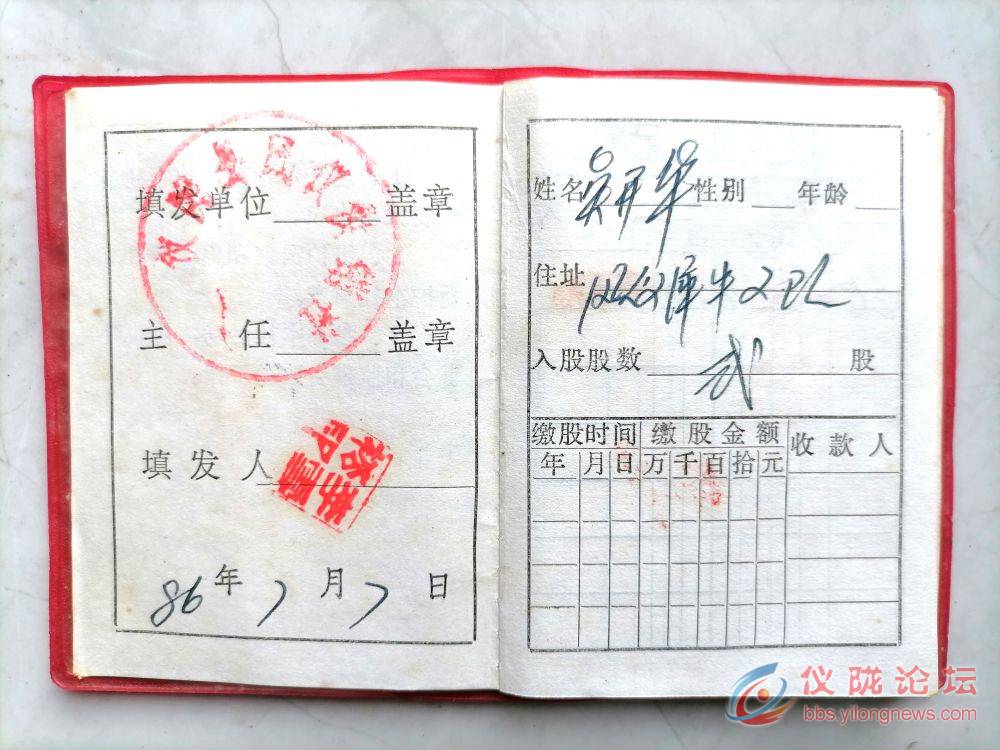 填发单位 盖章
主 任 盖章
填发人
86年7月7日
姓名 吴开华 性别 年龄
住址
入股股数 弍 股
缴股时间 缴股金额 收款人
年 月 日 万 千 百 拾 元
仪陇论坛
bbs.yilongnews.com